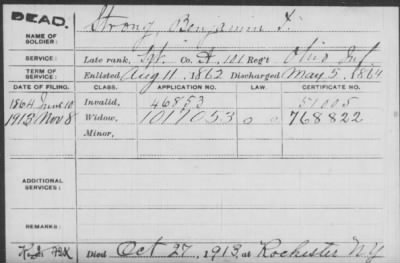 DEAD.
NAME OF SOLDIER: Strong, Benjamin F.
SERVICE: Late rank, Sgt. Co. A, 101 Reg't Ohio Inf.
TERM OF SERVICE: Enlisted Aug 11, 1862 Discharged May 5, 1864
DATE OF FILING. CLASS. APPLICATION NO. LAW. CERTIFICATE NO.
1864 June 10 Invalid, 46853 51005
1913 Nov 8 Widow, 1017053 o o 768822
Minor,
ADDITIONAL SERVICES:
REMARKS:
Died Oct 27, 1913, at Rochester N.Y.